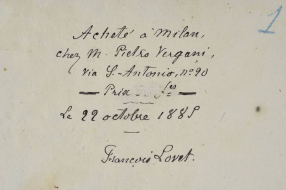 1
Acheté à Milan,
chez M. Pietro Vergani,
via S. Antonio, nº 20
— Prix frs —
Le 22 octobre 1885
François Lovet.